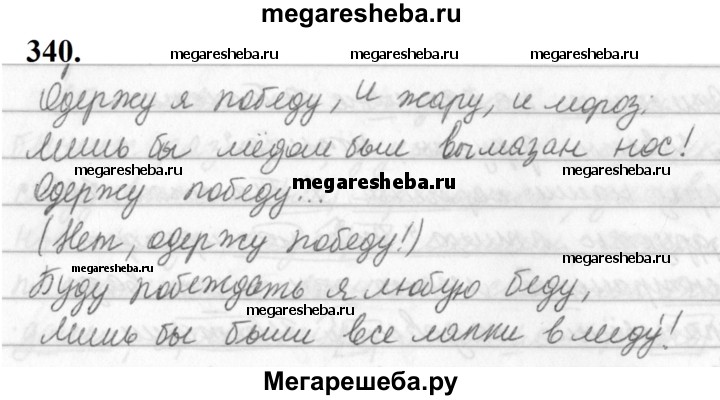 megaresheba.ru
340.
megaresheba.ru megaresheba.ru megaresheba.ru
Одержу я победу, и жару, и мороз,
Лишь бы мёдом был вымазан нос!
Одержу победу...
megaresheba.ru
(Нет, одержу победу!)
megaresheba.ru
megaresheba.ru
Буду побеждать я любую беду,
megaresheba.ru
Лишь бы были все лапки в меду!
megaresheba.ru
Мегарешеба.ру